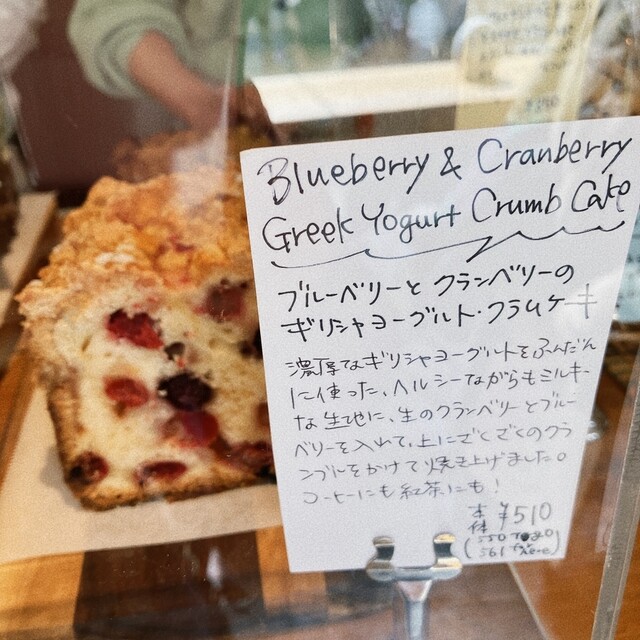 Blueberry & Cranberry
Greek Yogurt Crumb Cake
ブルーベリーとクランベリーの
ギリシャヨーグルト・クラムケーキ
濃厚なギリシャヨーグルトをふんだん
に使った、ヘルシーながらもミルキー
な生地に、生のクランベリーとブルー
ベリーを入れて、上にざくざくのクラ
ンブルをかけて焼き上げました。
コーヒーにも紅茶にも!
本体 ¥510